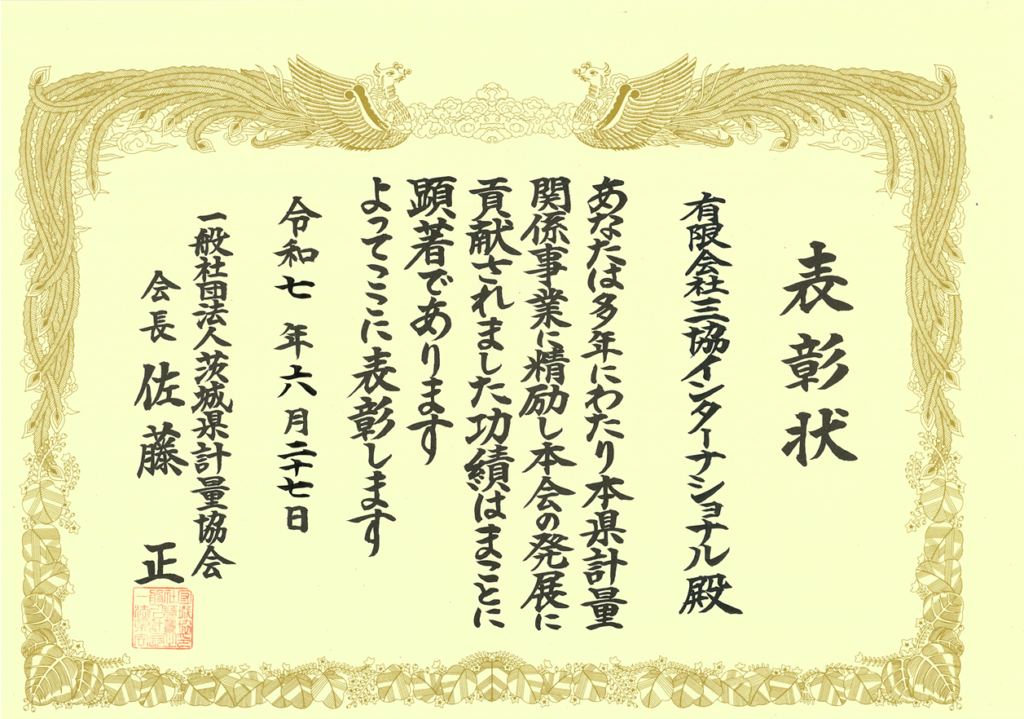 表彰状
有限会社三協インターナショナル殿
あなたは多年にわたり本県計量
関係事業に精励し本会の発展に
貢献されました功績はまことに
顕著であります
よってここに表彰します
令和七年六月二十七日
一般社団法人茨城県計量協会
会長 佐藤 正